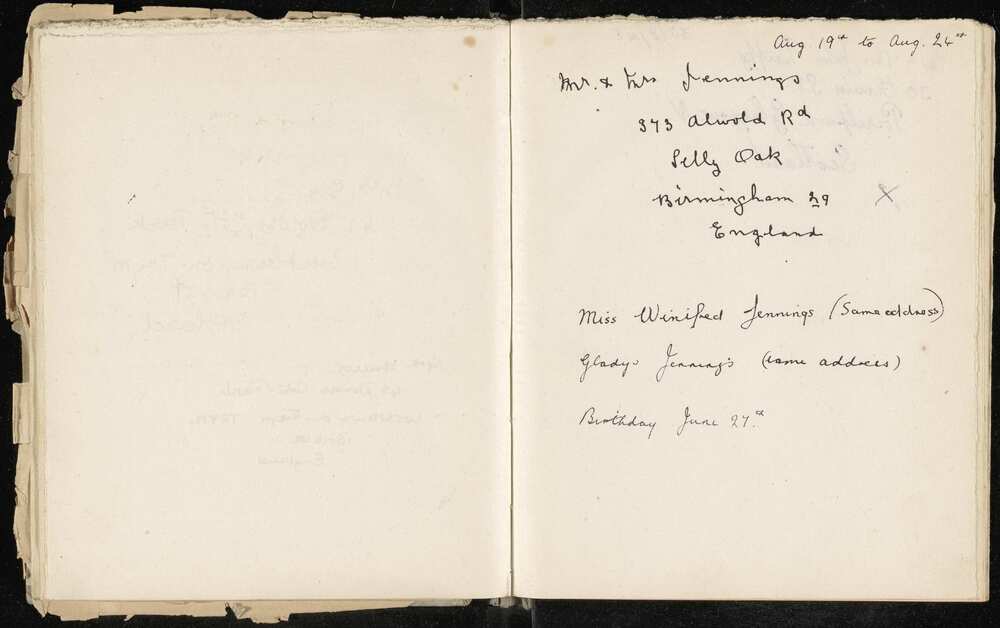 Aug 19th to Aug. 24th
Mr. & Mrs Jennings
373 Alwold Rd
Selly Oak
Birmingham 29
England
X
Miss Winifred Jennings (Same address)
Gladys Jennings (same address)
Birthday June 27th